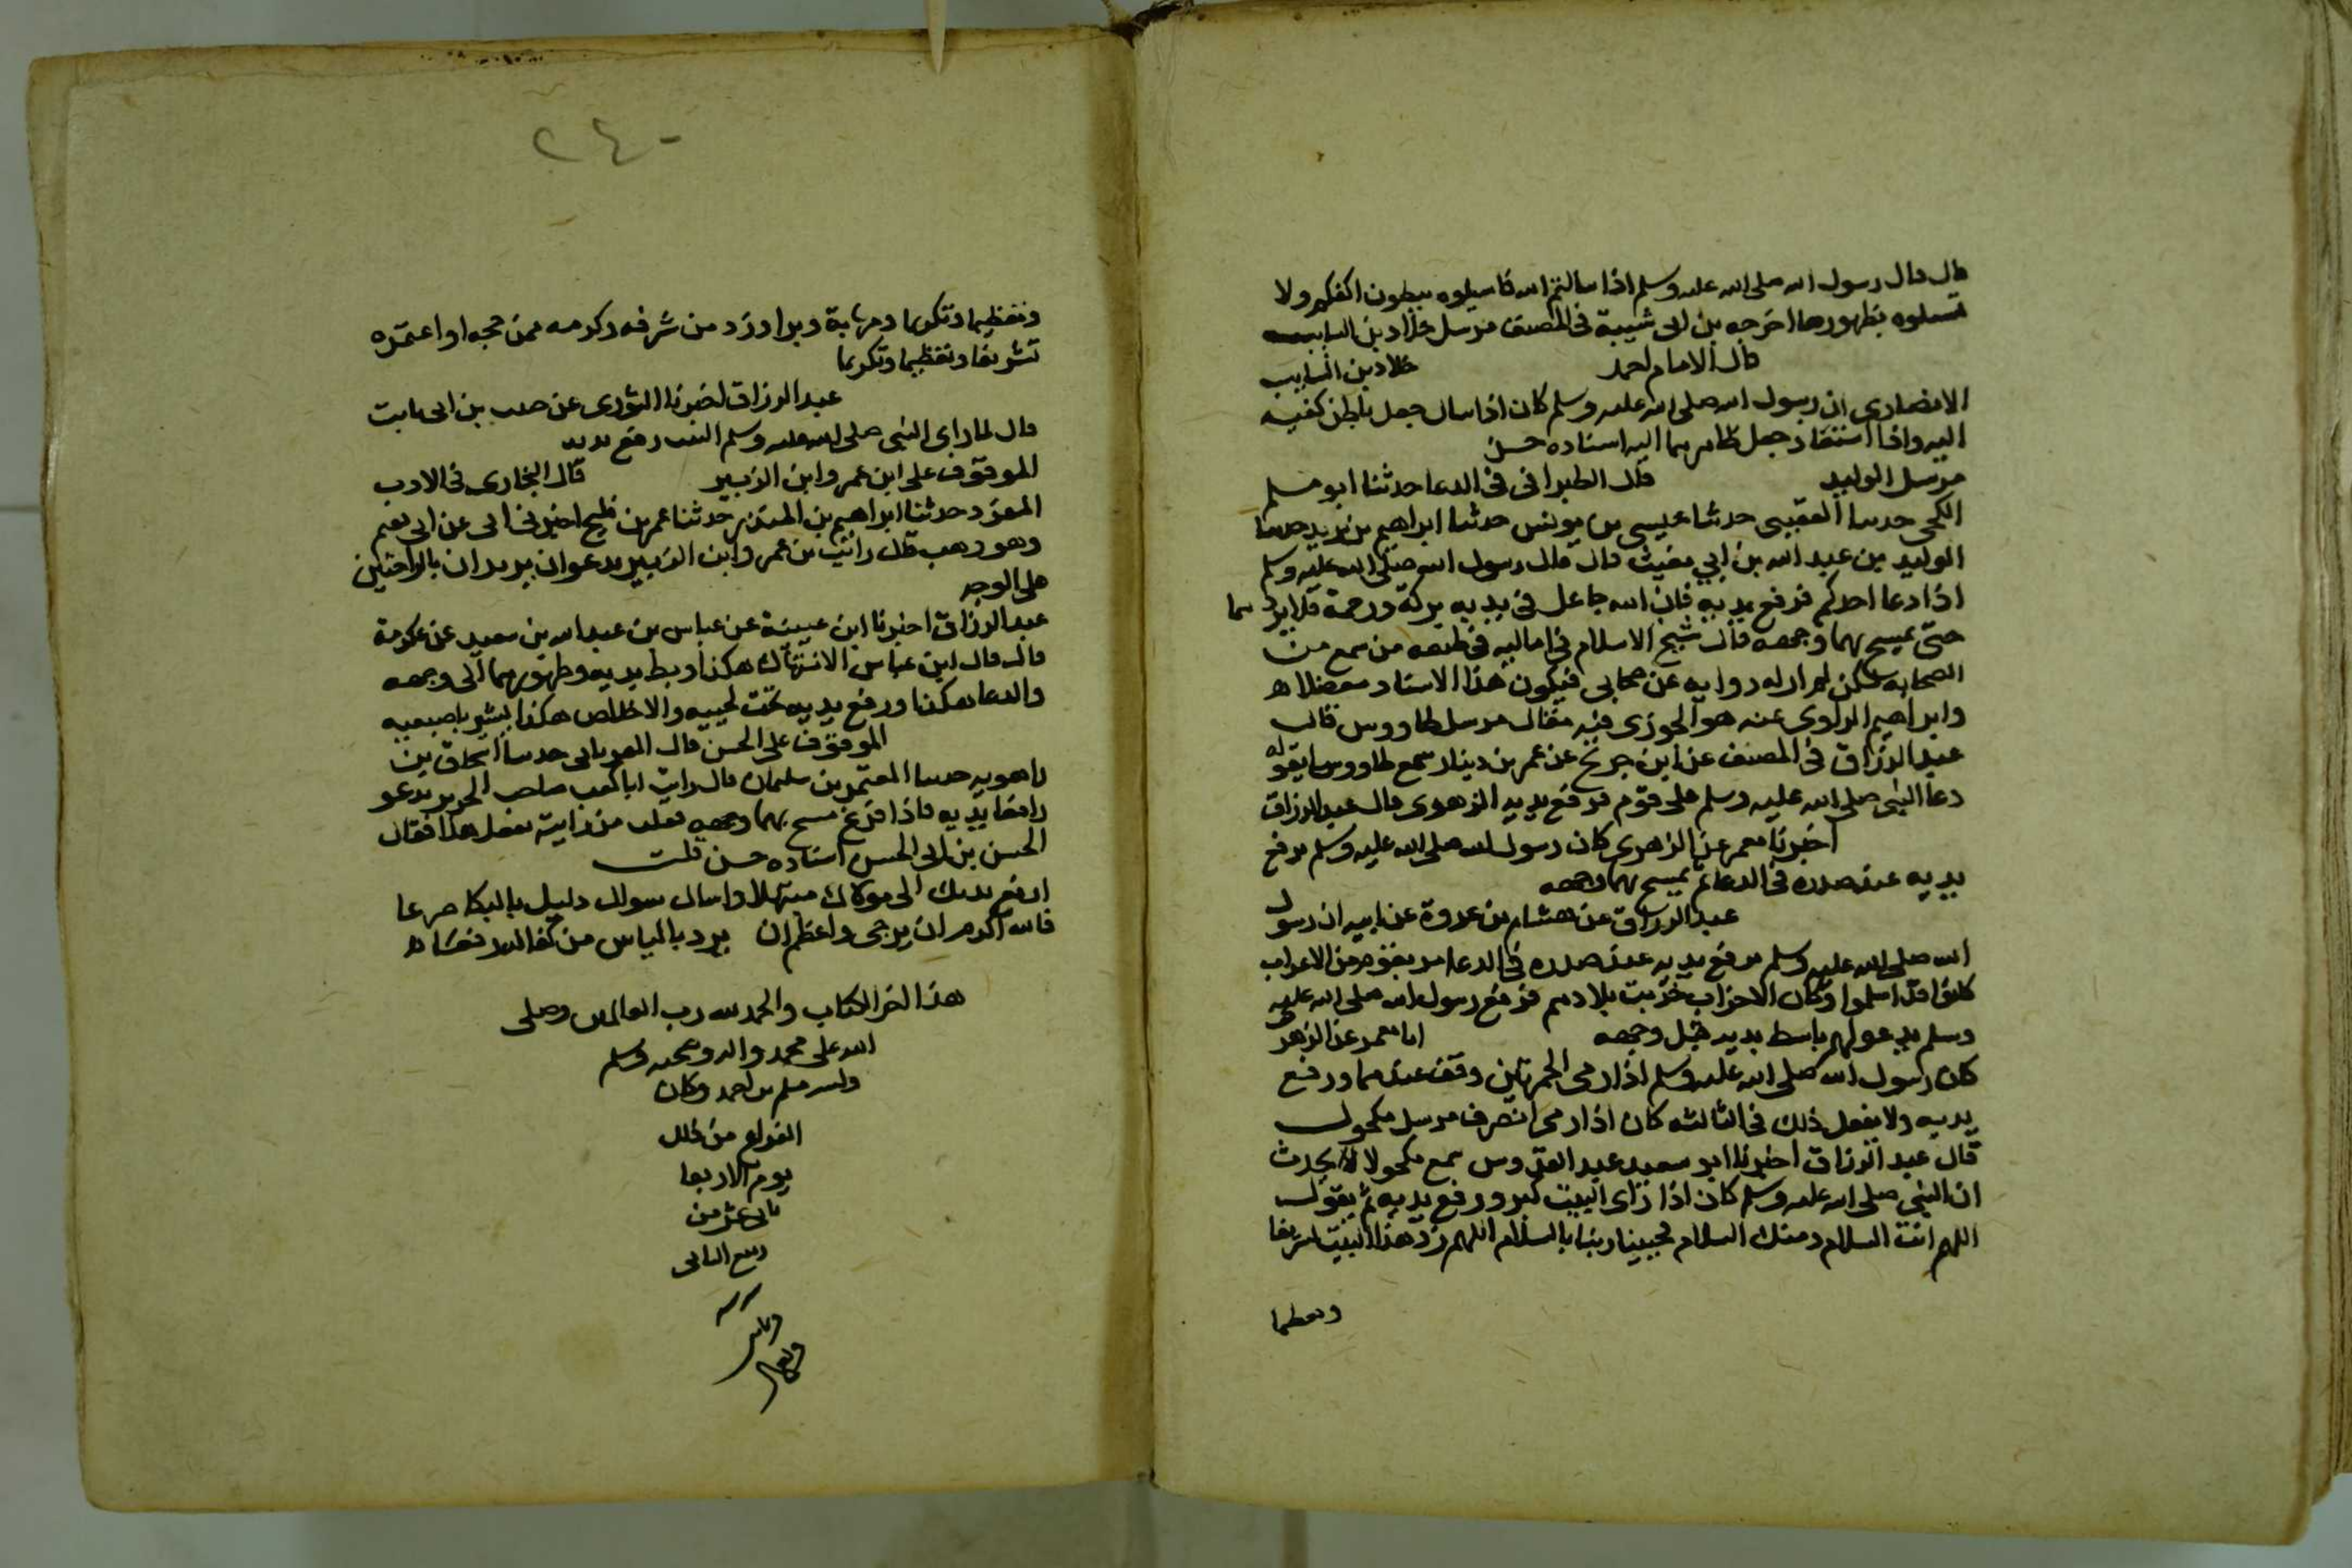 قال قال رسول الله صلى الله عليه وسلم اذا سالتم الله فاسيلوه ببطون اكفكم ولا
تسلوه بظهورها اخرجه بن ابى شيبة فى المصنف مرسل خلاد بن السايب
قال الامام احمد خلاد بن السايب
الانصارى ان رسول الله صلى الله عليه وسلم كان اذا سال جعل باطن كفيه
اليه واذا استعاذ جعل ظاهرهما اليه اسناده حسن
مرسل الوليد قال الطبرانى فى الدعا حدثنا ابو مسلم
الكجى حدثنا القعنبى حدثنا عيسى بن يونس حدثنا ابراهيم بن يزيد حدثنا
الوليد بن عبد الله بن ابي مغيث قال قال رسول الله صلى الله عليه وسلم
اذا دعا احدكم فرفع يديه فان الله جاعل فى يديه بركة ورحمة فلا يردهما
حتى يمسح بهما وجهه قال شيخ الاسلام فى اماليه فى طبقه من سمع من
الصحابه لكن لم ار له روايه عن صحابى فيكون هذا الاسناد معضلا ه
وابراهيم الراوى عنه هو الخوزى فيه مقال مرسل طاووس قال
عبد الرزاق فى المصنف عن ابن جريج عن عمر بن دينار سمع طاووسا يقول
دعا النبى صلى الله عليه وسلم على قوم فرفع يديه الزهرى قال عبد الرزاق
اخبرنا معمر عن الزهرى كان رسول الله صلى الله عليه وسلم يرفع
يديه عند صدره فى الدعا ثم يمسح بهما وجهه
عبد الرزاق عن هشام بن عروة عن ابيه ان رسول
الله صلى الله عليه وسلم يرفع يديه عند صدره فى الدعا مر بقوم من الاعراب
كانوا قد اسلموا وكان الاحزاب خربت بلادهم فرفع رسول الله صلى الله عليه
وسلم يدعو لهم باسط يديه قبل وجهه انا معمر عن الزهرى
كان رسول الله صلى الله عليه وسلم اذا رمى الجمرتين وقف عندهما ورفع
يديه ولا يفعل ذلك فى الثالثه كان اذا رمى انصرف مرسل مكحول
قال عبد الرزاق اخبرنا ابو سعيد عبد القدوس سمع مكحولا يحدث
ان النبى صلى الله عليه وسلم كان اذا راى البيت كبر ورفع يديه ثم يقول
اللهم انت السلام ومنك السلام فحيينا ربنا بالسلام اللهم زد هذا البيت تشريفا
وتعظيما
٢٤٠
وتعظيما وتكريما ومهابة وبرا وزد من شرفه وكرمه ممن حجه او اعتمره
تشريفا وتعظيما وتكريما
عبد الرزاق اخبرنا الثورى عن حبيب بن ابى ثابت
قال لما راى النبى صلى الله عليه وسلم البيت رفع يديه
الموقوف على ابن عمر وابن الزبير قال البخارى فى الادب
المفرد حدثنا ابراهيم بن المنذر حدثنا محمد بن فليح اخبرنى ابى عن ابى نعيم
وهو وهب قال رايت بن عمر وابن الزبير يدعوان يديران بالراحتين
على الوجه
عبد الرزاق اخبرنا ابن عيينة عن عباس بن عبد الله بن سعيد عن عكرمة
قال قال ابن عباس الابتهال هكذا وبسط يديه وظهورهما الى وجهه
والدعا هكذا ورفع يديه تحت لحييه والاخلاص هكذا يشير باصبعيه
الموقوف على الحسن قال الفريابى حدثنا اسحاق بن
راهويه حدثنا المعتمر بن سليمان قال رايت ابا كعب صاحب الحرير يدعو
رافعا يديه فاذا فرغ مسح بهما وجهه فقلت من رايت يفعل هذا فقال
الحسن بن ابى الحسن اسناده حسن قلت
ارفع يديك الى مولاك مبتهلا واسال سوال ذليل بالبكا ضرعا
فالله اكرم ان يرجى واعظم ان يرد بالياس من كفا اليه رفعا ه
هذا اخر الكتاب والحمد لله رب العالمين وصلى
الله على محمد واله وصحبه وسلم
احمد وكان
الفراغ من ذلك
يوم الاربعا
ثانى عشر من
ربيع الثانى